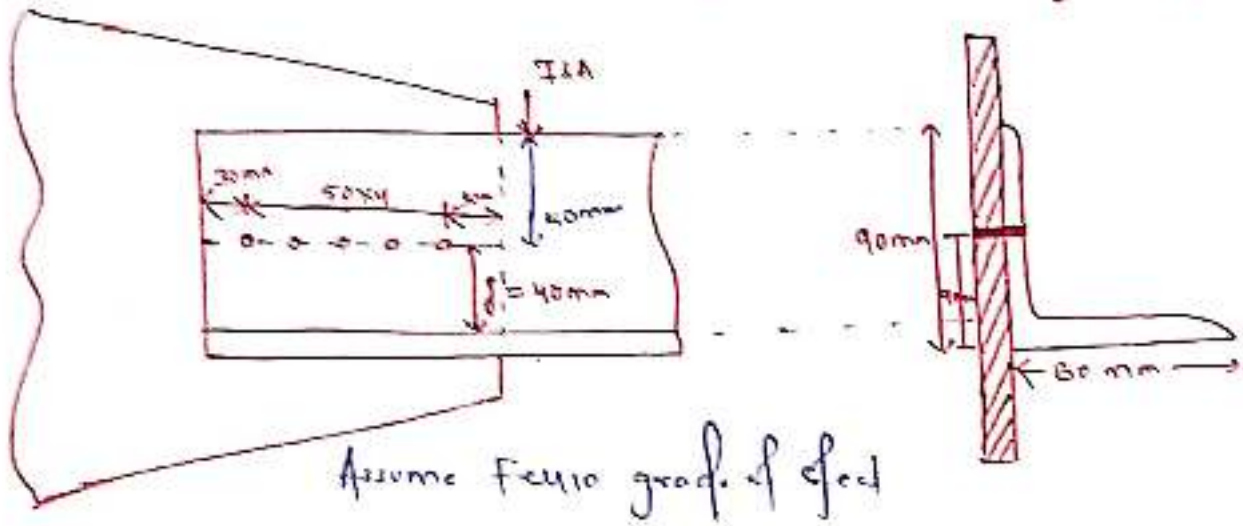 ISA
30mm
50x4
40mm
g' = 40mm
90mm
60 mm
Assume Fe410 grade of steel